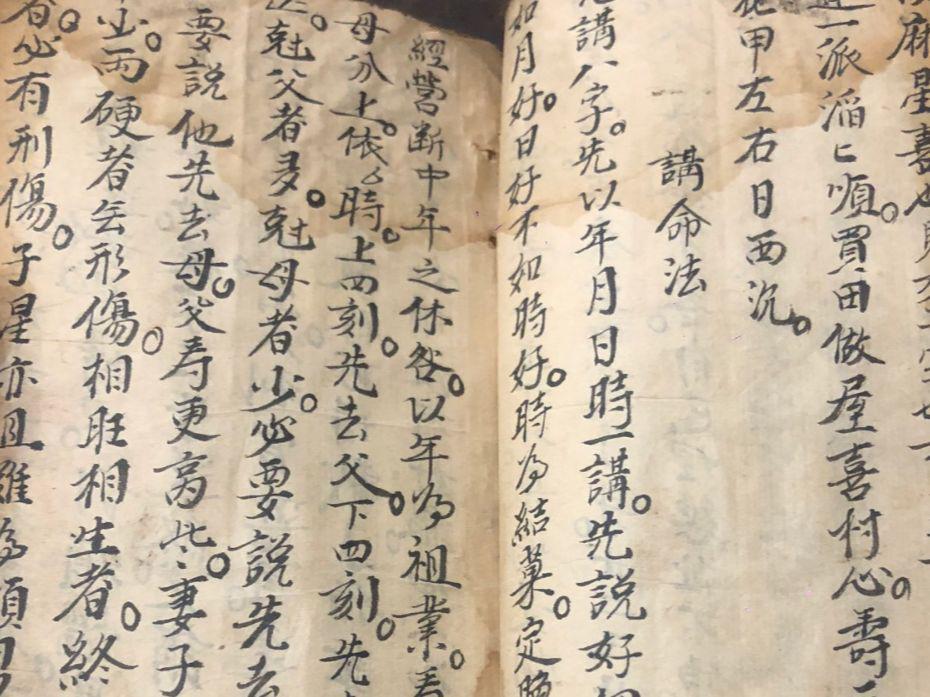 麻星喜
一派滔〻順。買田做屋喜村心。壽
花甲左右日西沉。
講命法
講八字。先以年月日時一講。先説好
如月好。日好不如時好。時為結菓。定晚
經營断中年之休咎。以年為祖業。
母分上。依時。上四刻。先去父。下四刻。先
尅父者多。尅母者少。必要説先去
要説他先去母。父寿更高些。妻子
必両硬者无形傷。相旺相生者。終
必有刑傷。子星亦且雖為